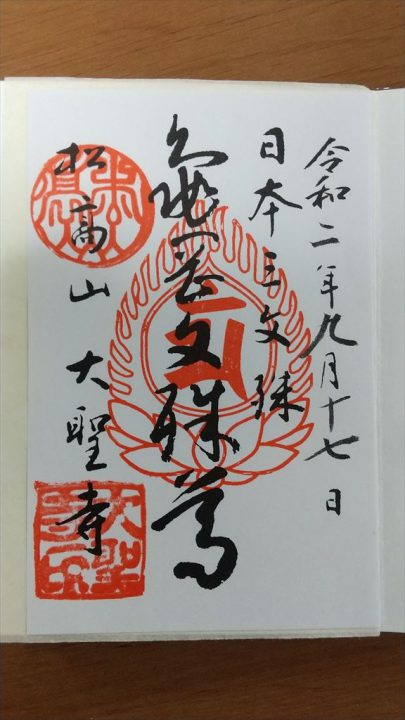 令和二年九月十七日
日本三文殊
亀岡文殊尊
松高山 大聖寺